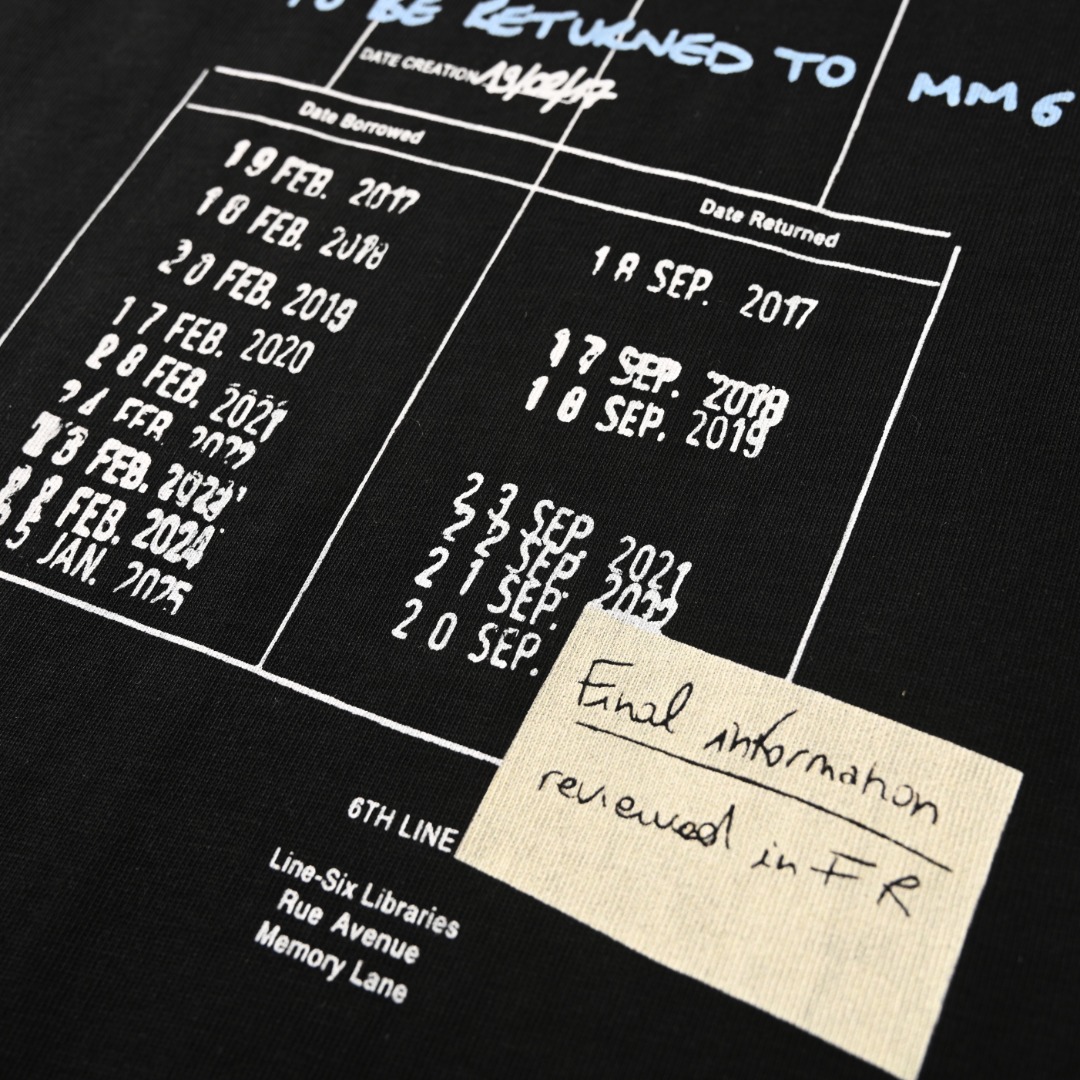 TO BE RETURNED TO MM6
DATE CREATION 19/02/17
Date Borrowed
Date Returned
19 FEB. 2017
18 FEB. 2018
20 FEB. 2019
17 FEB. 2020
28 FEB. 2021
24 FEB. 2022
FEB. 2023
FEB. 2024
JAN. 2025
18 SEP. 2017
17 SEP. 2018
18 SEP. 2019
23 SEP. 2021
22 SEP. 2022
21 SEP.
20 SEP.
Final information
reviewed in FR
6TH LINE
Line-Six Libraries
Rue Avenue
Memory Lane